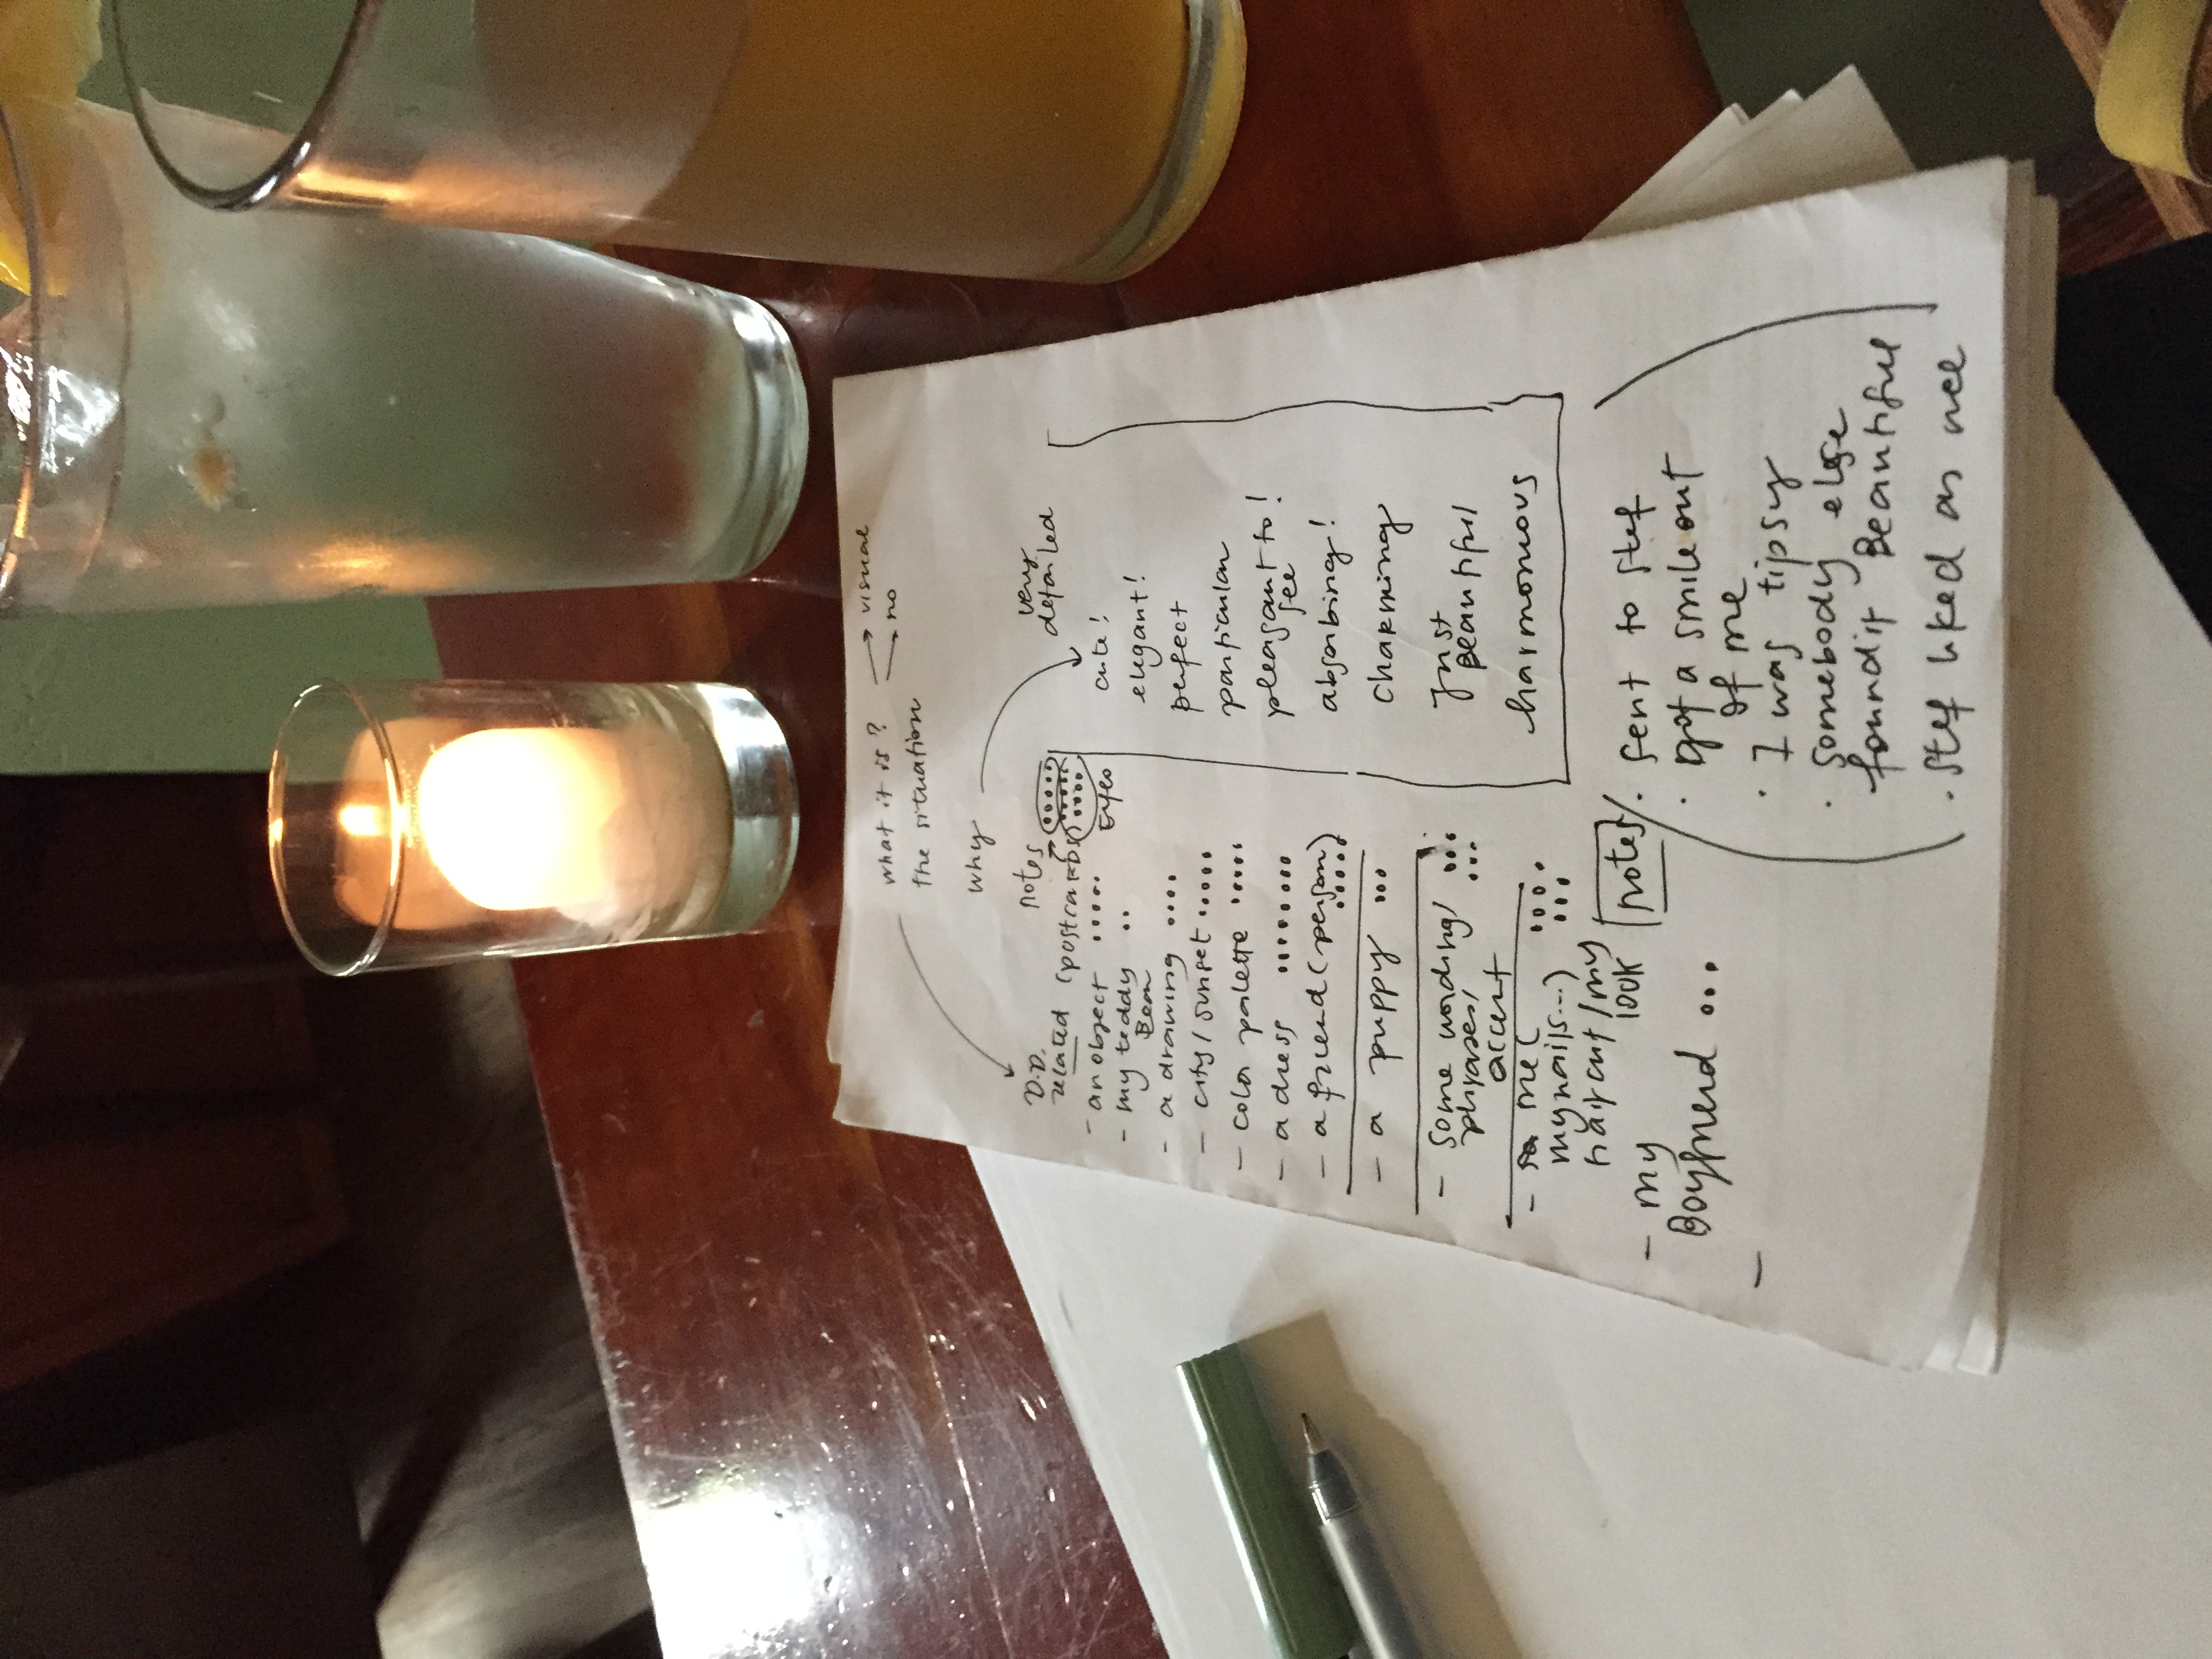 what it is? → visual
→ no
the situation
why
very
detailed
notes
D.D.
related (postcards)
Expo
- an object
- my teddy
Bear
- a drawing
- city/sunset
- color palette
- a dress
- a friend (person)
- a puppy
- some wording/
phrases/
accent
- me (
my nails...)
haircut/my
look
- my
Boyfriend ...
-
cute!
elegant!
perfect
particular
pleasant to!
see
absorbing!
charming
Just
Beautiful
harmonous
notes
· sent to stef
· got a smile out
of me
· I was tipsy
· somebody else
found it Beautiful
· stef liked as well